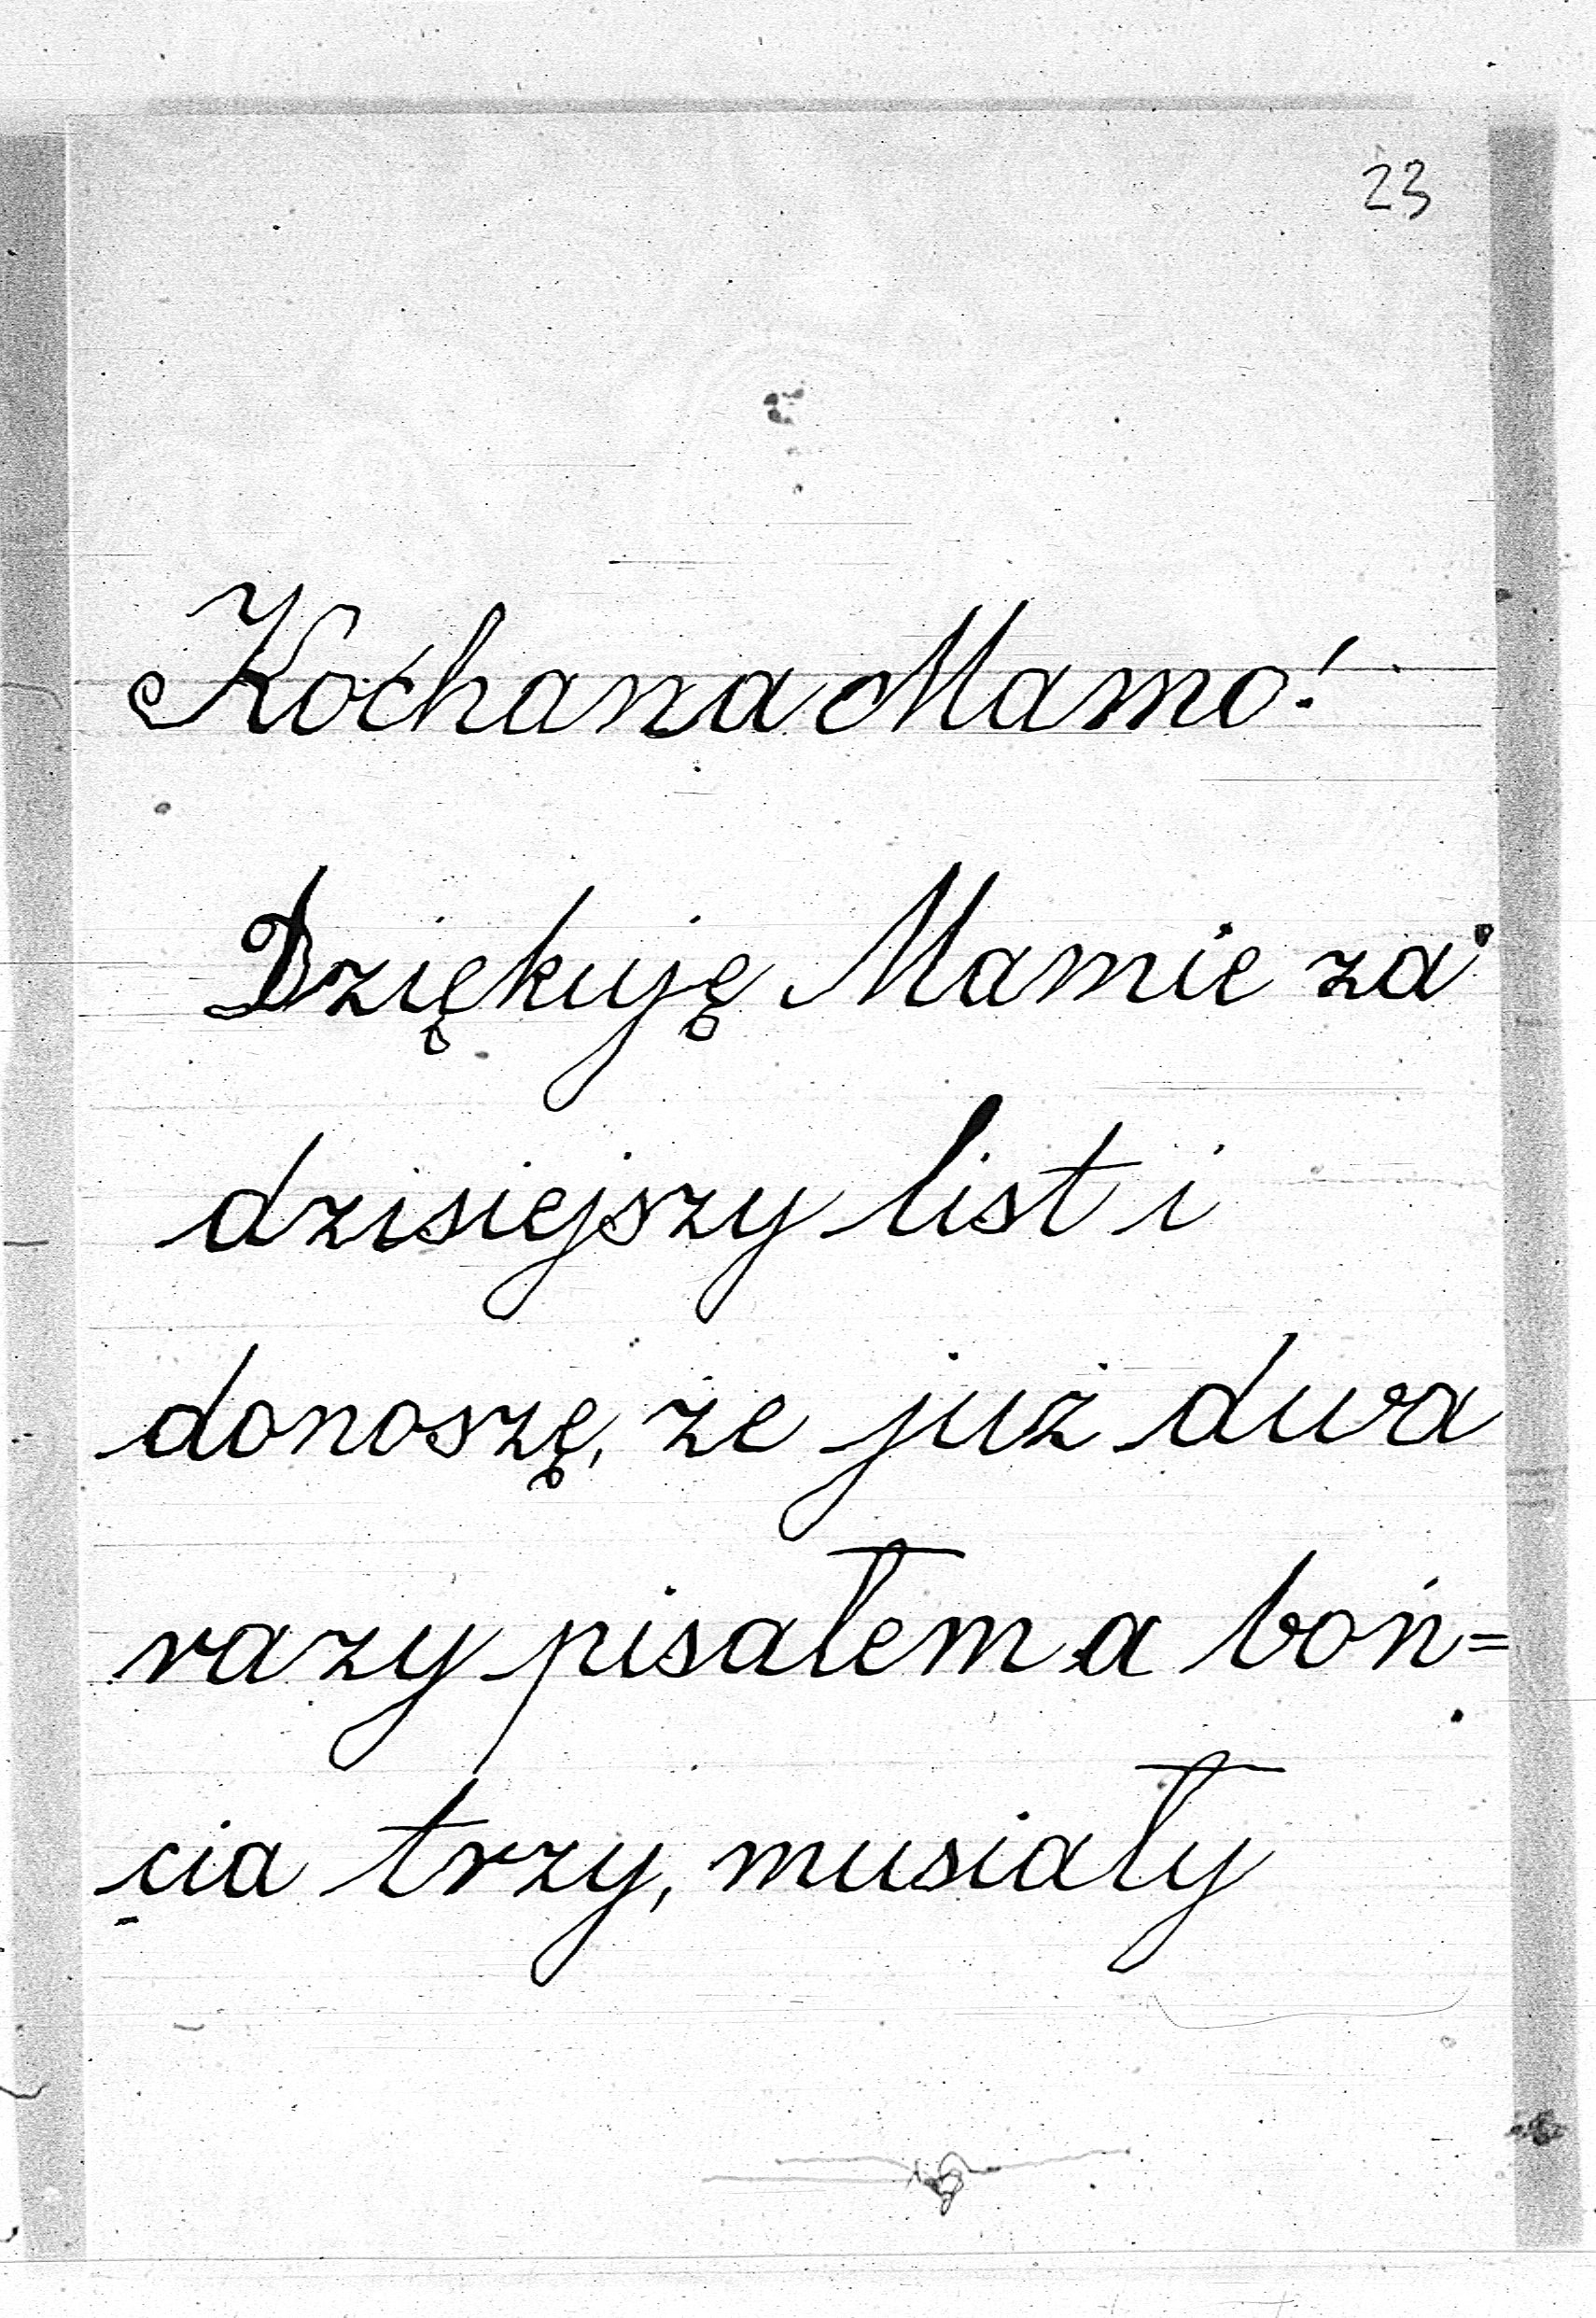 23
Kochana Mamo!
Dziękuję Mamie za
dzisiejszy list i
donoszę, że już dwa
razy pisałem a boń=
cia trzy, musiały